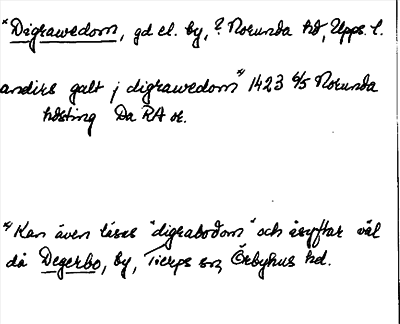 *Digrawedom, gd el. by, ? Norunda hd, Upps. l.
anders galt j digrawedom *) 1423 6/5 Norunda
hdsting Da RA or.
*) Kan även läsas "digrabodom" och åsyftar väl
då Degerbo, by, Tierps sn, Örbyhus hd.